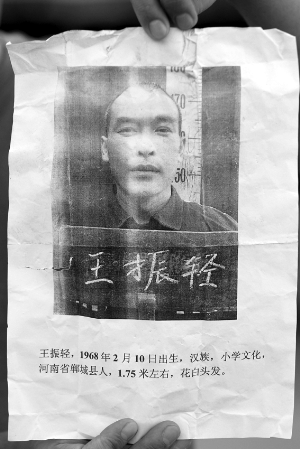 70
50
王振轻
王振轻，1968年2月10日出生，汉族，小学文化，
河南省郸城县人，1.75米左右，花白头发。